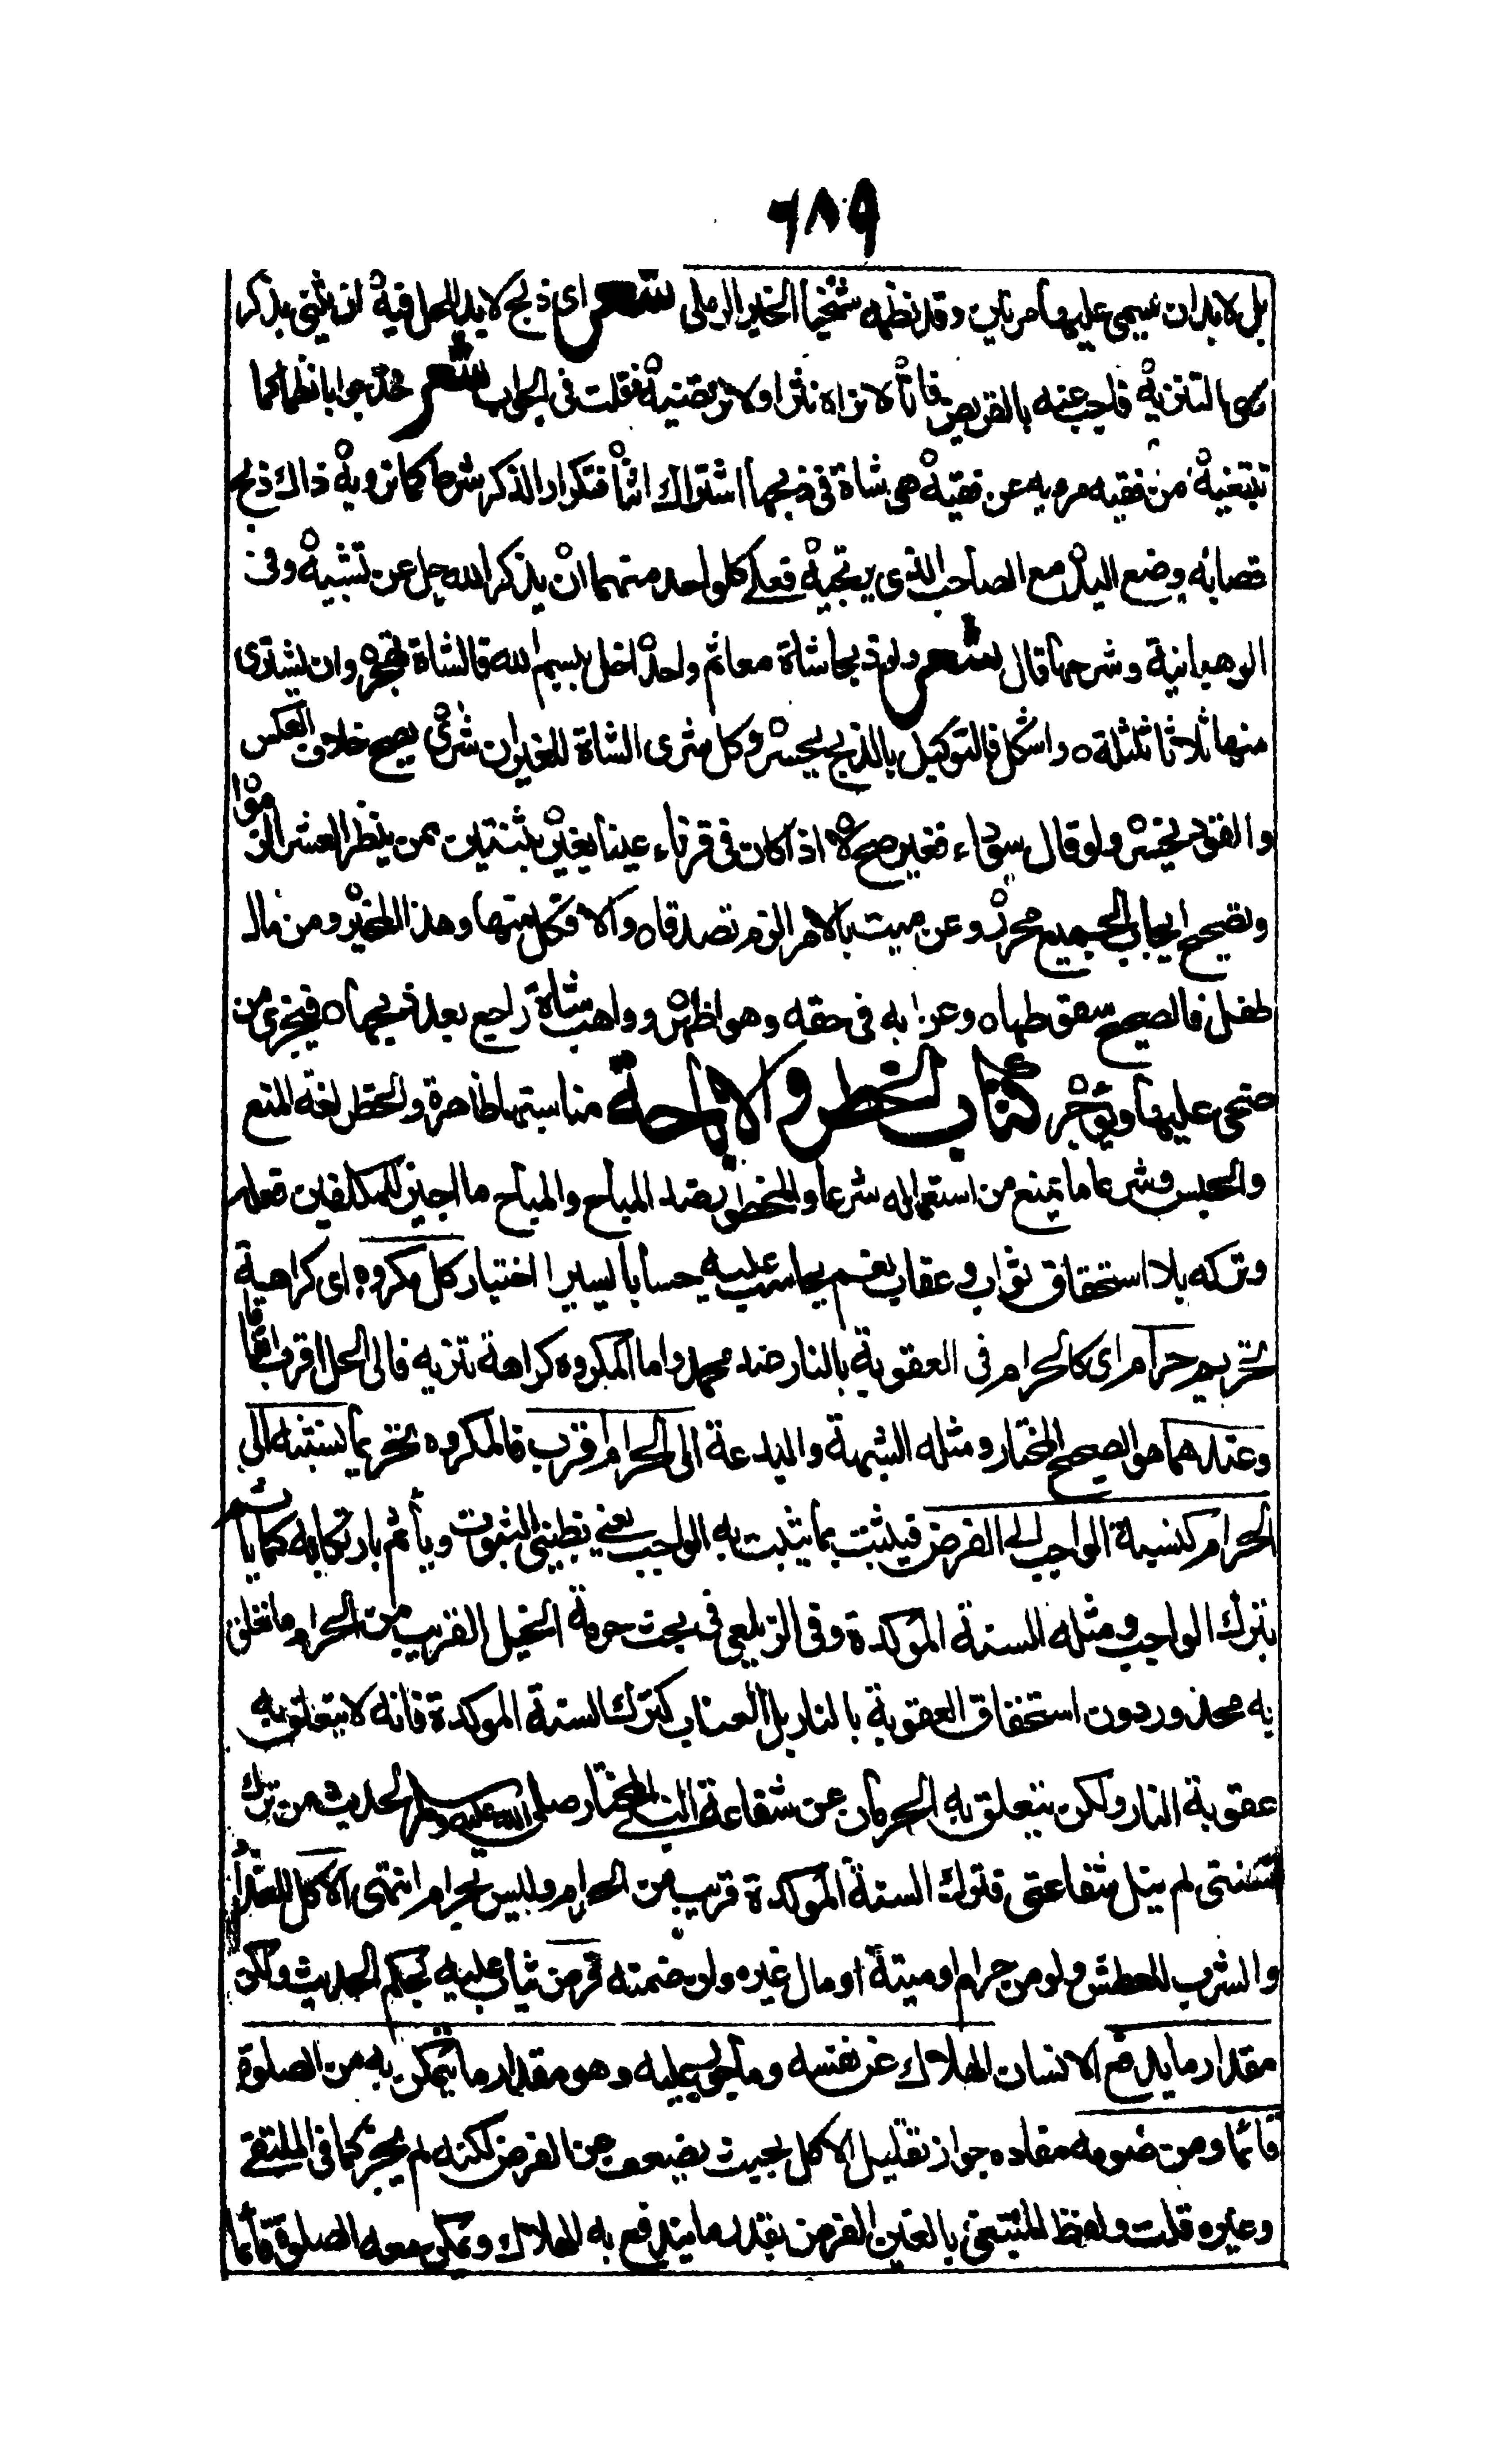 ٦٨٩
بل لا بد ان يسمى عليها مرتين وقد نظمه شيخنا الخير الرملى شعر اى ذبح لا بد للحل فيه ان يثنى بذكر
ذى التنزيه فاجب عنه بالقريض فانا لا نراه نثرا ولا نرتضيه فقلت فى الجواب شعر خذ جوابا نظما كما
تبتغيه من فقيه مرويه عن فقيه هى شاة فى ذبحها اشتراك اثنا فتكرار الذكر شرط كما ترويه ذاك ذبح
قصابه وضع اليد مع الصاحب الذى يرتجيه فعلى كل واحد منهما ان يذكر الله جل عن تشبيه وفى
الوهبانية وشرحها قال شعر ولو ذبحا شاة معا ثم واحد اخل ببسم الله فالشاة تهجر وان يشترى
منها ثلاثا ثلثلة ٥ واشكل فالتوكيل بالذبح يحسر وكل شرى الشاة للغير ان شرى يصح خلاف العكس
والقود يخسر ولو قال سوداء فغير صح لا اذا كان فى قرناء عينا يغير بثنتين من ينظر العشر الزموا
وتصحيح ايجاب الجميع محرر وعن ميت بالامر الزم تصدقا ٥ والا فكل منها وهذا المخير ومن مال
طفل فالصحيح سقوطها ٥ وعن ابه فى حقه وهو اظهر وواهب شاة راجع بعد ذبحها ٥ فيجزى من
ضحى عليها ويؤجر كتاب الحظر والاباحة مناسبتها ظاهرة والحظر لغة المنع
والحبس وشرعا ما يمنع من استعماله شرعا والمحظور ضد المباح والمباح ما اجيز للمكلفين فعله
وتركه بلا استحقاق ثواب وعقاب نعم يحاسب عليه حسابا يسيرا اختيار كل مكروه اى كراهية
تحريم حرام اى كالحرام فى العقوبة بالنار ضد محمد واما المكروه كراهة تنزيه فالى الحل اقرب اتفاقا
وعندهما هو الصحيح المختار ومثله الشبهة والبدعة الى الحرام اقرب فالمكروه تحريما نسبته الى
الحرام كنسبة الواجب الى الفرض فيثبت بما يثبت به الواجب يعنى بظنى الثبوت ويأثم بارتكابه كما يأثم
بترك الواجب ومثله السنة المؤكدة وفى الزيلعى فى بحث حرمة الخيل القريب من الحرام ما تعلق
به محذور دون استحقاق العقوبة بالنار بل العتاب كترك السنة المؤكدة فانه لا يتعلق به
عقوبة النار ولكن يتعلق به الحرمان عن شفاعة النبى المختار صلى الله عليه وسلم لحديث من ترك
سنتى لم ينل شفاعتى فترك السنة المؤكدة قريب من الحرام وليس بحرام انتهى الاكل للغذاء
والشرب للعطش ولو من حرام او ميتة او مال غيره وان ضمنه فرض يثاب عليه بحكم الحديث ولكن
مقدار ما يدفع الانسان الهلاك عن نفسه ومأجور عليه وهو مقدار ما يتمكن به من الصلوة
قائما ومن صومه مفاده جواز تقليل الاكل بحيث يضعف عن الفرض لكنه لم يجز كما فى الملتقى
وغيره قلت ولفظ المبتغى بالغين الفرض بقدر ما يندفع به الهلاك ويمكن معه الصلوة قائما